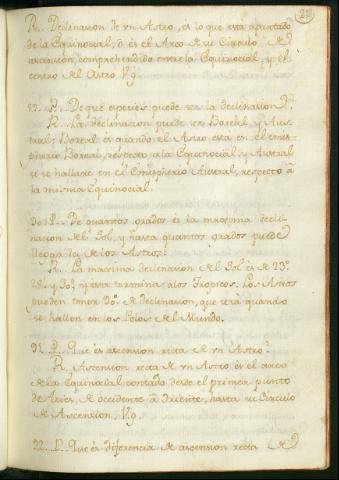 R. Declinacion de vn Astro, es lo que está apartado
de la Equinocial, ò es el Arco de su Circulo de
ascension, comprehendido entre la Equinocial, y el
centro del Astro Vg.
P. De que especies puede ser la declinacion?
R. La declinacion puede ser Boreal, y Aus-
tral; Boreal es quando el Astro està en el emis-
pherio Boreal, respecto a la Equinocial, y Austral
si se hallare en el Emispherio Austral, respecto à
la misma Equinocial.
30. P. De quantos grados es la maxima decli-
nacion del Sol, y hasta quantos grados puede
llegar la de los Astros?
R. La maxima declinacion del Sol es de 23°
y esta termina a los Tropicos. Los Astros
pueden tener 90° de declinacion, que serà quando
se hallen en los Polos del Mundo.
31. P. Que es ascension recta de vn Astro?
R. Ascension recta de vn Astro es el arco
de la Equinocial contado desde el primer punto
de Aries, de occidente à Oriente, hasta su Circulo
de Ascension, Vg.
32. P. Que es diferencia de ascension recta de